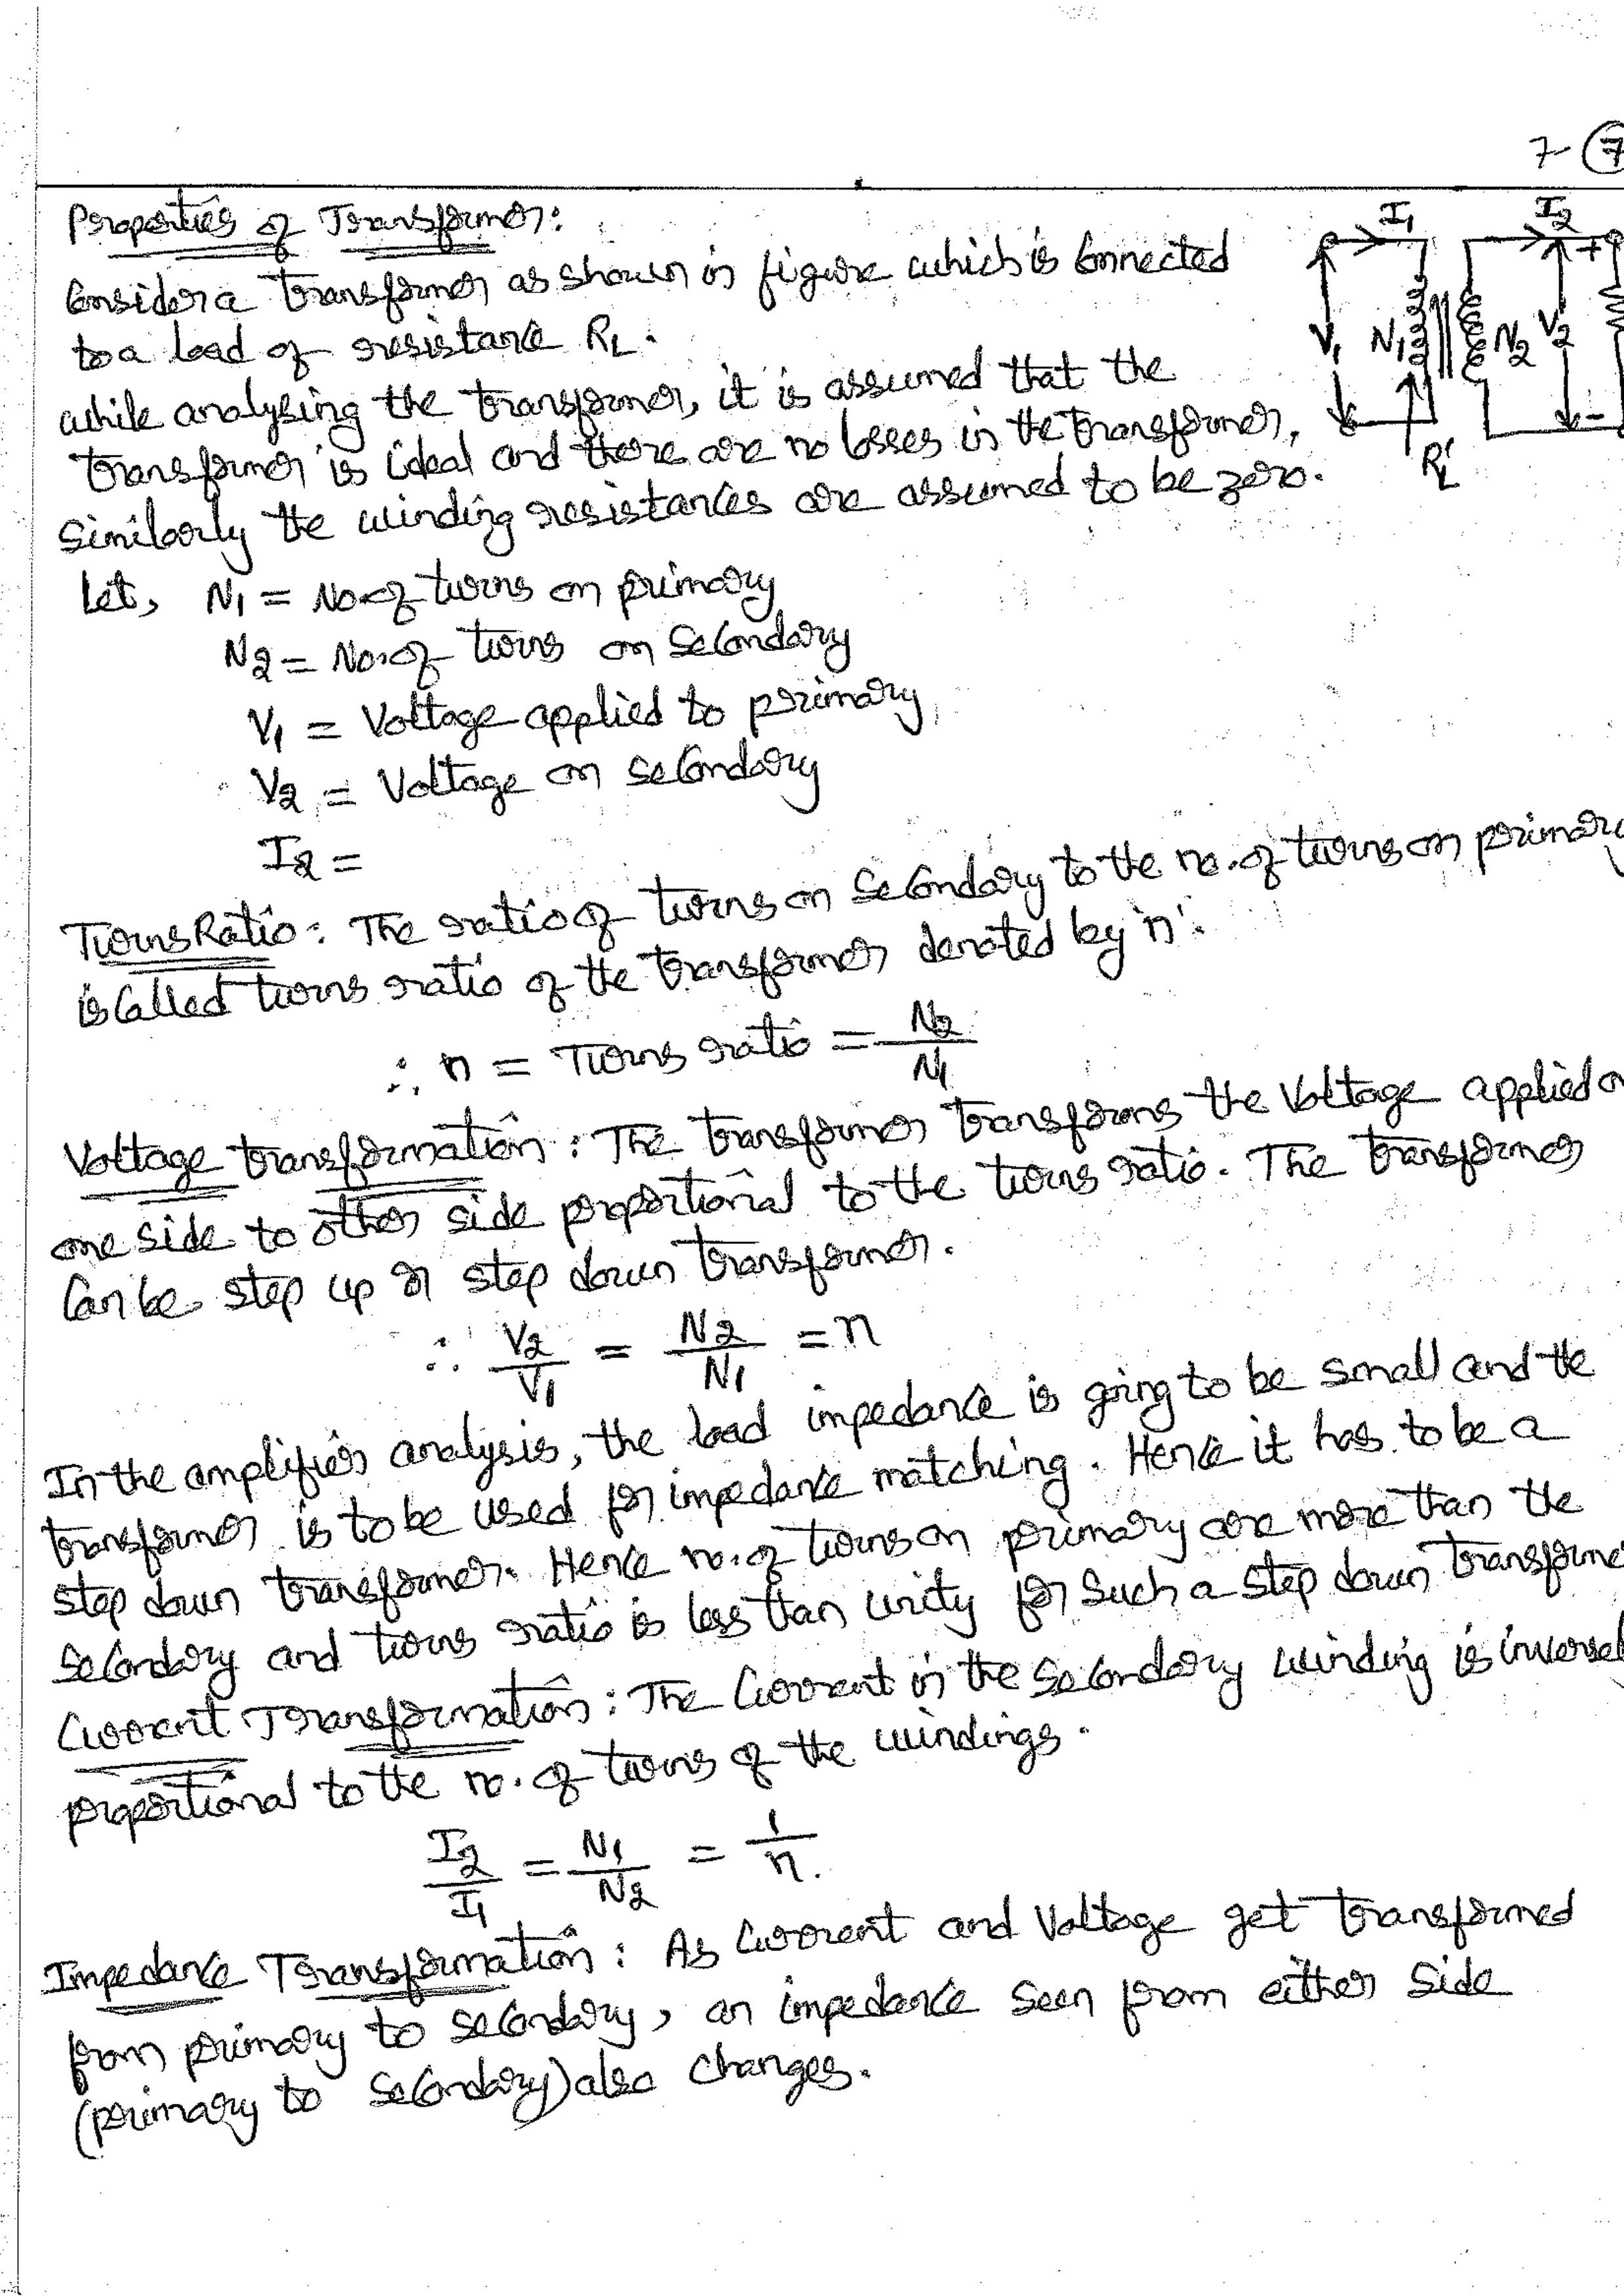 7-(7
Properties of Transformer:
Consider a transformer as shown in figure which is connected
to a load of resistance RL.
while analysing the transformer, it is assumed that the
transformer is ideal and there are no losses in the transformer,
Similarly the winding resistances are assumed to be zero.
I1 I2
+
V1 N1 N2 V2
-
RL'
Let, N1 = No. of turns on primary
N2 = No. of turns on Secondary
V1 = Voltage applied to primary
V2 = Voltage on secondary
I2 =
Turns Ratio: The ratio of turns on Secondary to the no. of turns on primary
is called turns ratio of the transformer denoted by 'n'.
∴ n = Turns ratio = N2/N1
Voltage transformation: The transformer transforms the Voltage applied o
one side to other side proportional to the turns ratio. The transformer
Can be step up or step down transformer.
∴ V2/V1 = N2/N1 = n
In the amplifier analysis, the load impedance is going to be small and the
transformer is to be used for impedance matching. Hence it has to be a
step down transformer. Hence no. of turns on primary are more than the
Secondary and turns ratio is less than unity for Such a step down transforme
Current Transformation: The Current in the Secondary winding is inversel
proportional to the no. of turns of the windings.
I2/I1 = N1/N2 = 1/n.
Impedance Transformation: As Current and Voltage get transformed
from primary to secondary, an impedance seen from either side
(primary to Secondary) also changes.